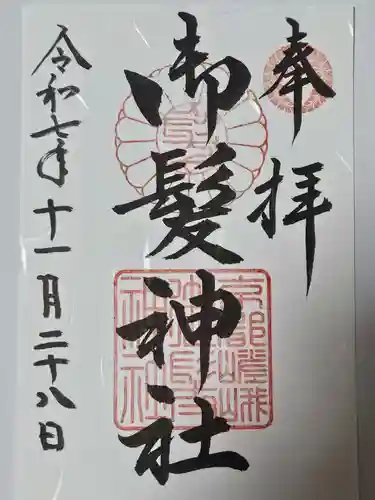 奉拝
御髪神社
令和七年十一月二十八日
京都嵯峨
御髪神社